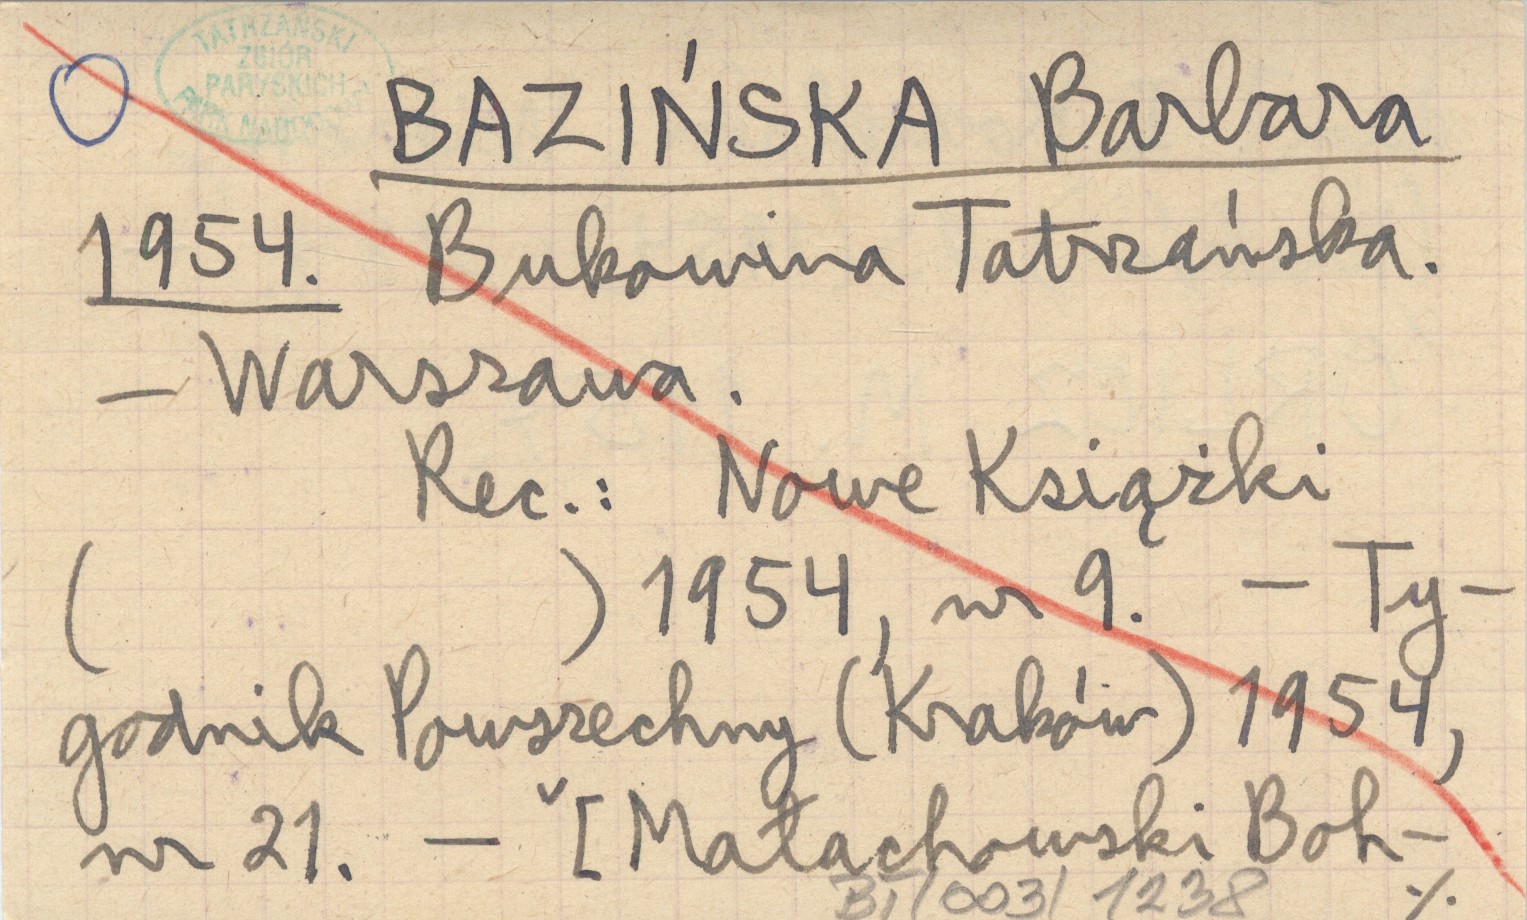 TATRZAŃSKI
ZBIÓR
PARYSKICH
BAZIŃSKA Barbara
1954. Bukowina Tatrzańska.
— Warszawa.
Rec.: Nowe Książki
( ) 1954, nr 9. — Ty-
godnik Powszechny (Kraków) 1954,
nr 21. — ˇ[Małachowski Boh-
BI/003/1238 ·/.